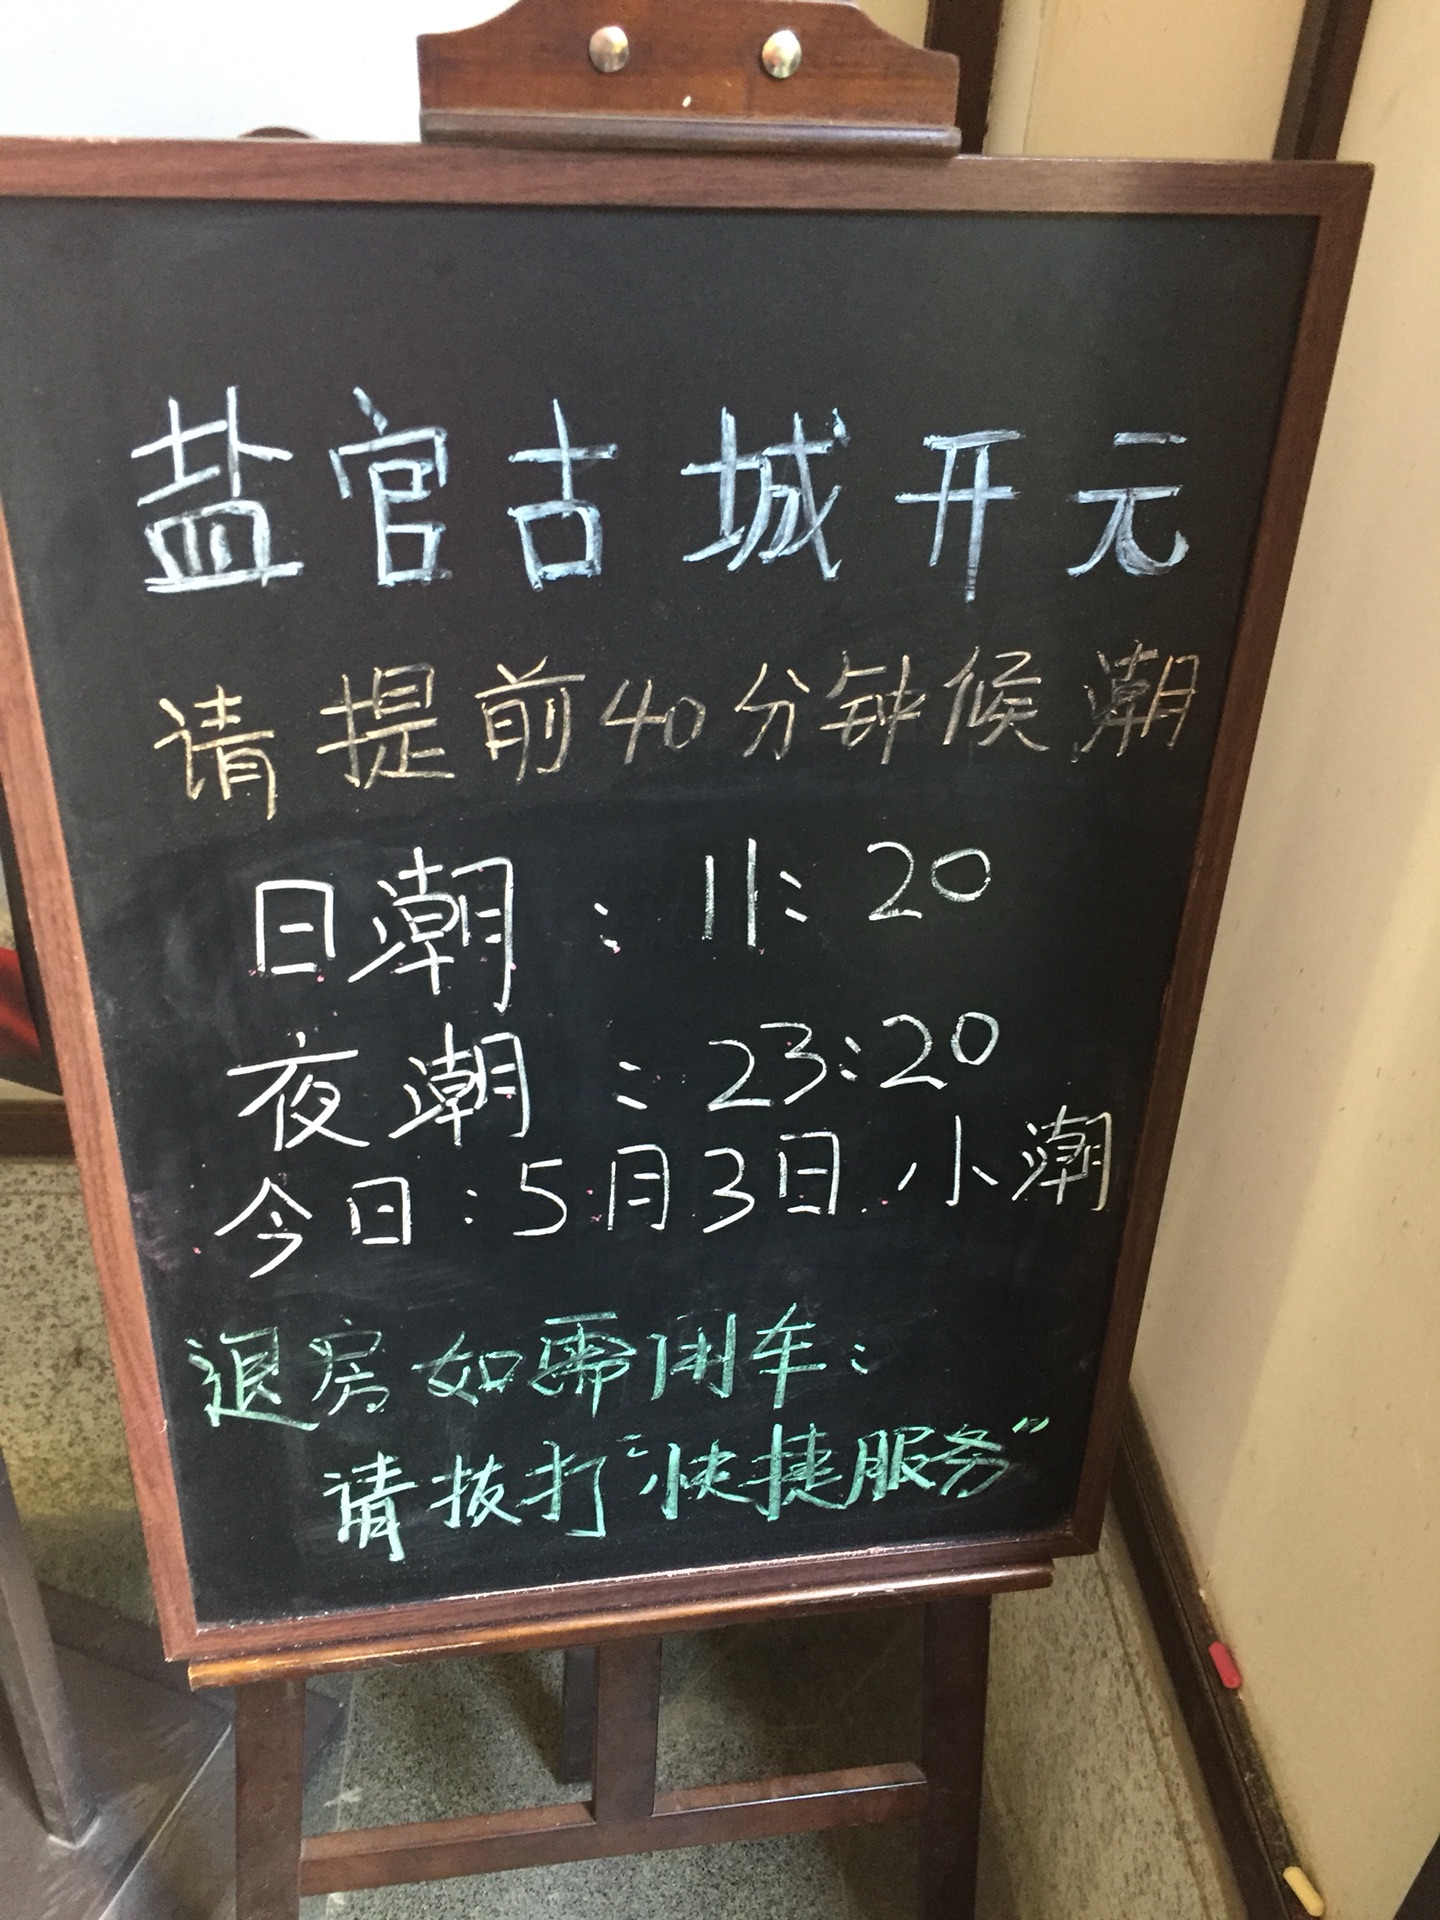 盐官古城开元
请提前40分钟候潮
日潮：11：20
夜潮：23：20
今日：5月3日.小潮
退房如需用车：
请拨打“快捷服务”